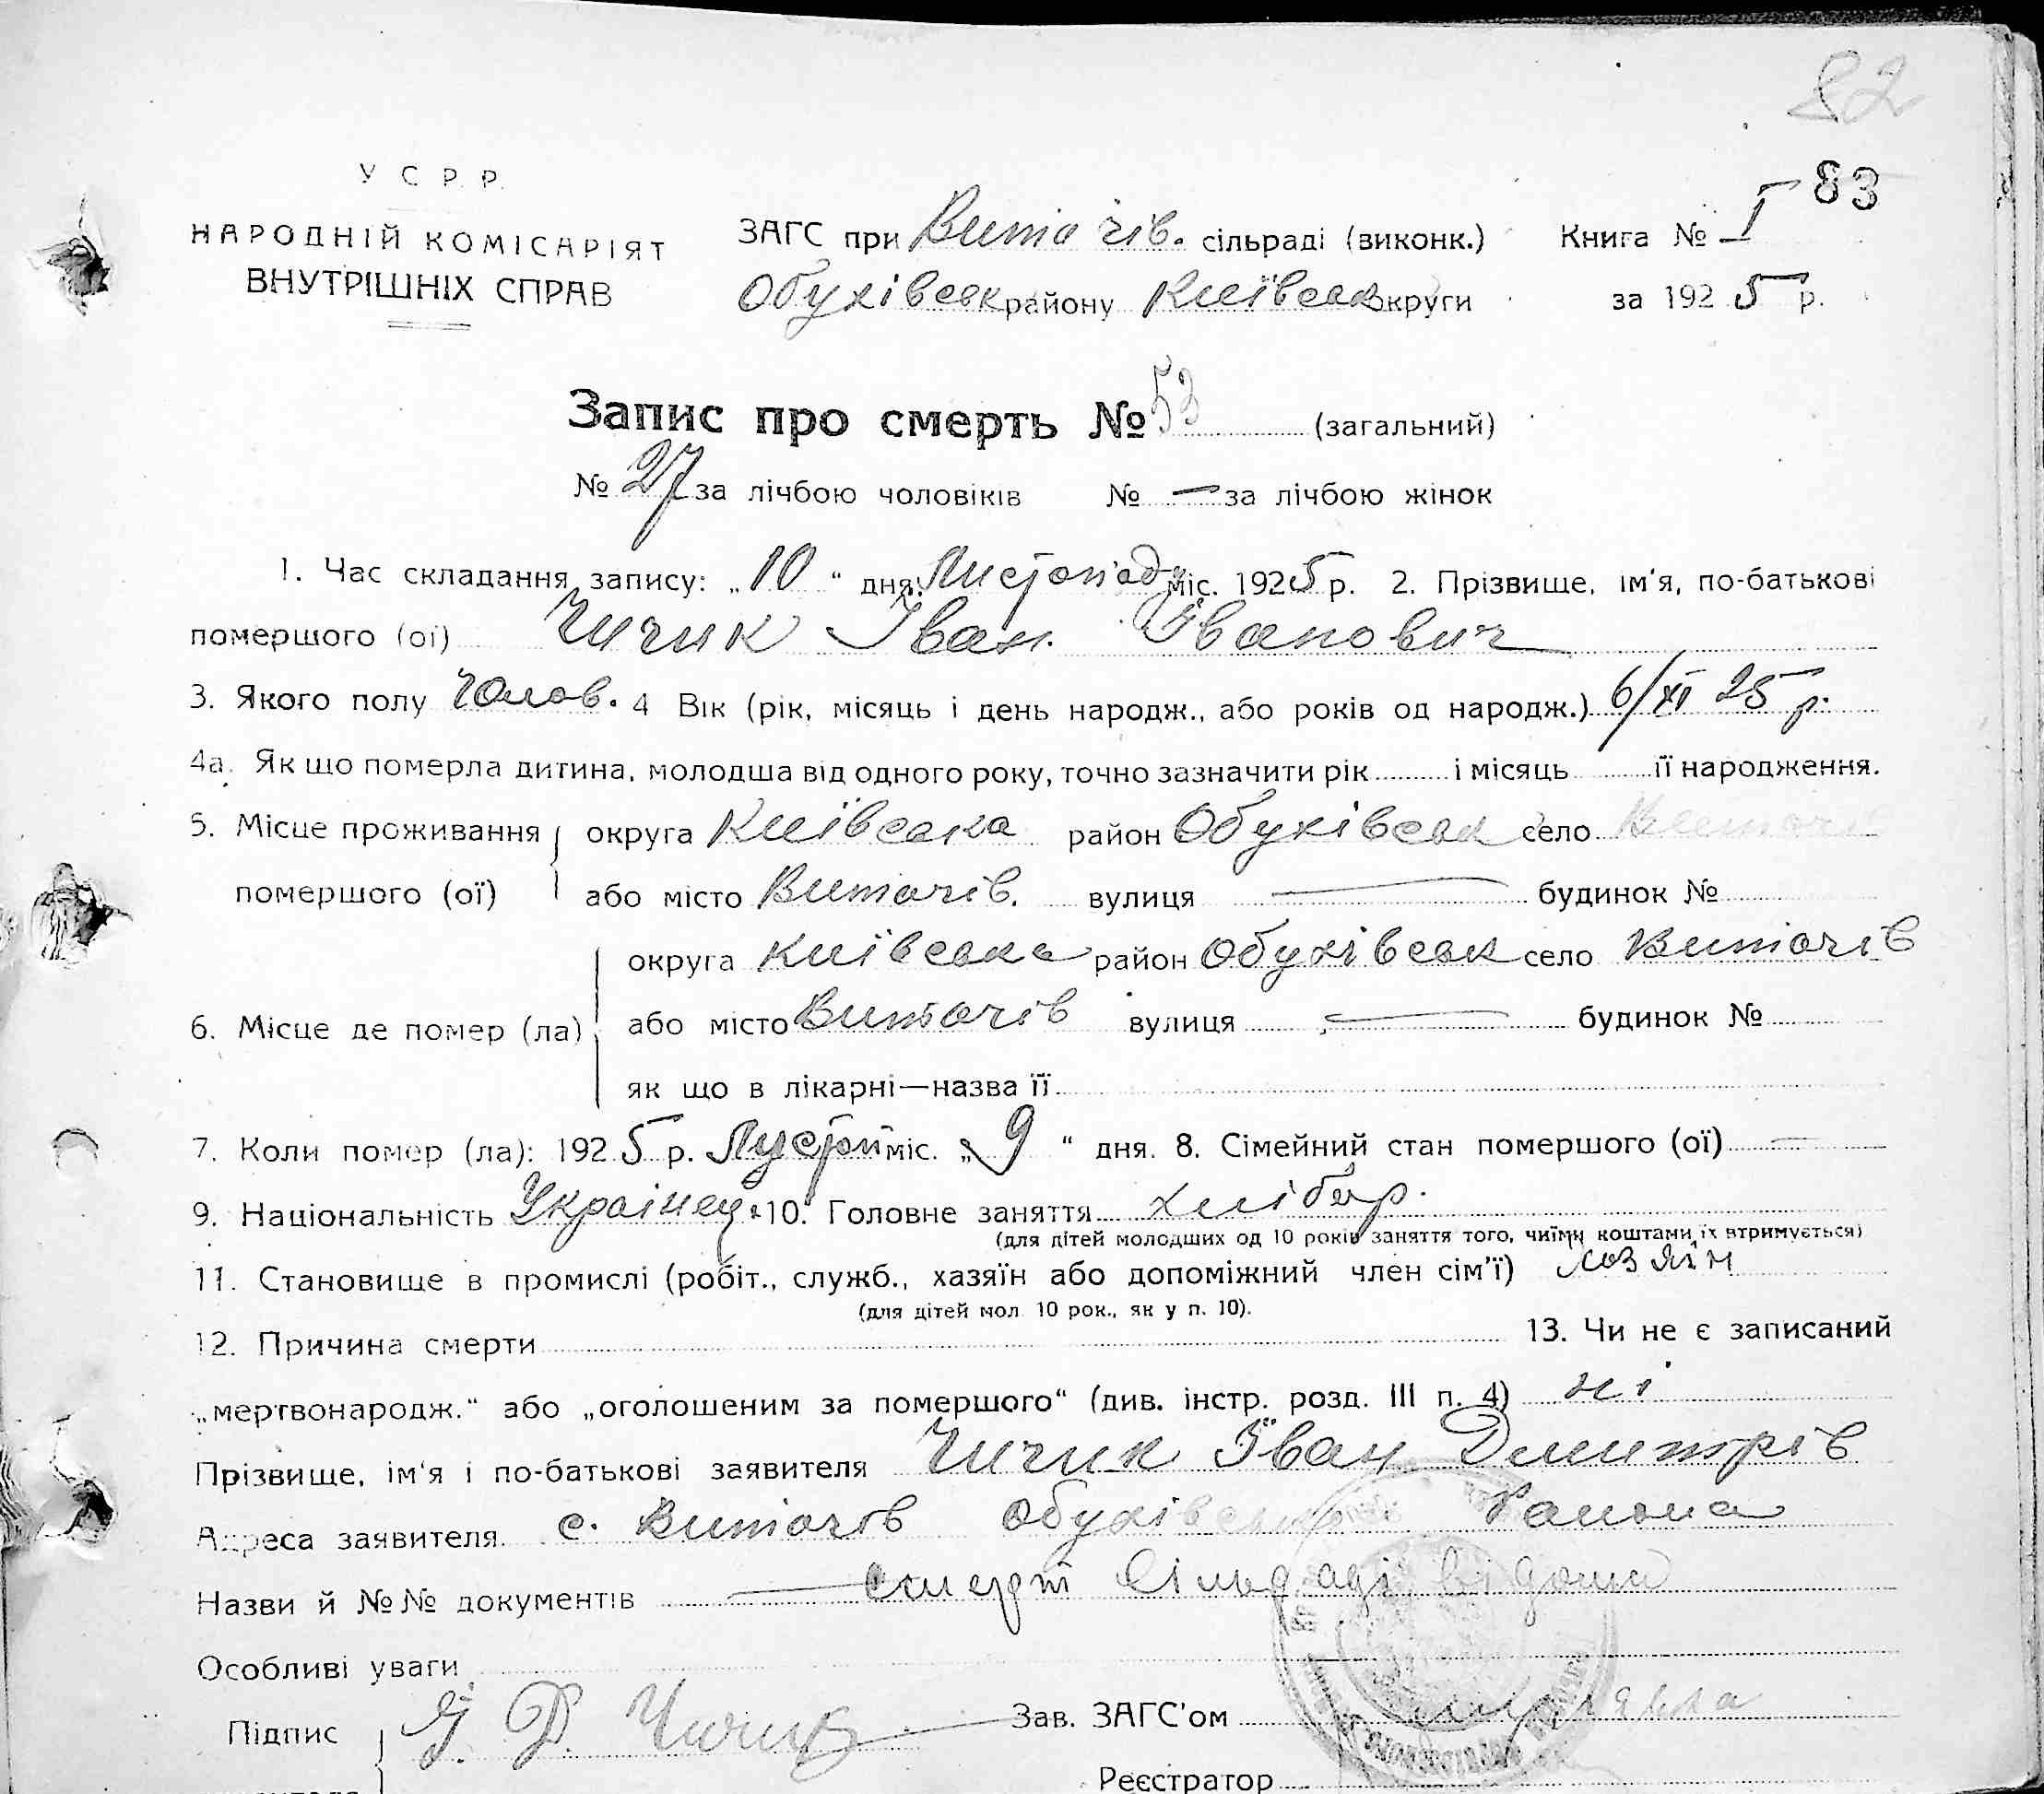 82
83
У С Р Р.
НАРОДНІЙ КОМІСАРІЯТ
ВНУТРІШНІХ СПРАВ
ЗАГС при Витачів. сільраді (виконк.) Книга № I
Обухівськ району Київськ округи за 1925 р.
Запис про смерть № 53 (загальний)
№ 27 за лічбою чоловіків № — за лічбою жінок
1. Час складання запису: „10“ дня Листопаду міс. 1925 р. 2. Прізвище, ім'я, по-батькові
помершого (ої) Чичик Іван Іванович
3. Якого полу Чолов. 4 Вік (рік, місяць і день народж., або років од народж.) 6/XI 25 р.
4а. Як що померла дитина, молодша від одного року, точно зазначити рік і місяць її народження.
5. Місце проживання округа Київська район Обухівськ село Витачі
помершого (ої) або місто Витачів. вулиця — будинок №
округа Київська район Обухівськ село Витачів
6. Місце де помер (ла) або місто Витачів вулиця — будинок №
як що в лікарні—назва її
7. Коли помер (ла): 1925 р. Лустоп міс. „9“ дня. 8. Сімейний стан помершого (ої) —
9. Національність Украінец. 10. Головне заняття хлібор.
(для дітей молодших од 10 років заняття того, чиїми коштами їх втримується)
11. Становище в промислі (робіт., служб., хазяїн або допоміжний член сім'ї) хозяін
(для дітей мол. 10 рок., як у п. 10).
12. Причина смерти 13. Чи не є записаний
„мертвонародж.“ або „оголошеним за помершого“ (див. інстр. розд. III п. 4) ні
Прізвище, ім'я і по-батькові заявителя Чичик Іван Дмитрів
Адреса заявителя с. Витачів Обухівськ Раиона
Назви й №№ документів — смерт Сільраді відома
Особливі уваги
Підпис І. Д. Чичик Зав. ЗАГС'ом
Реєстратор